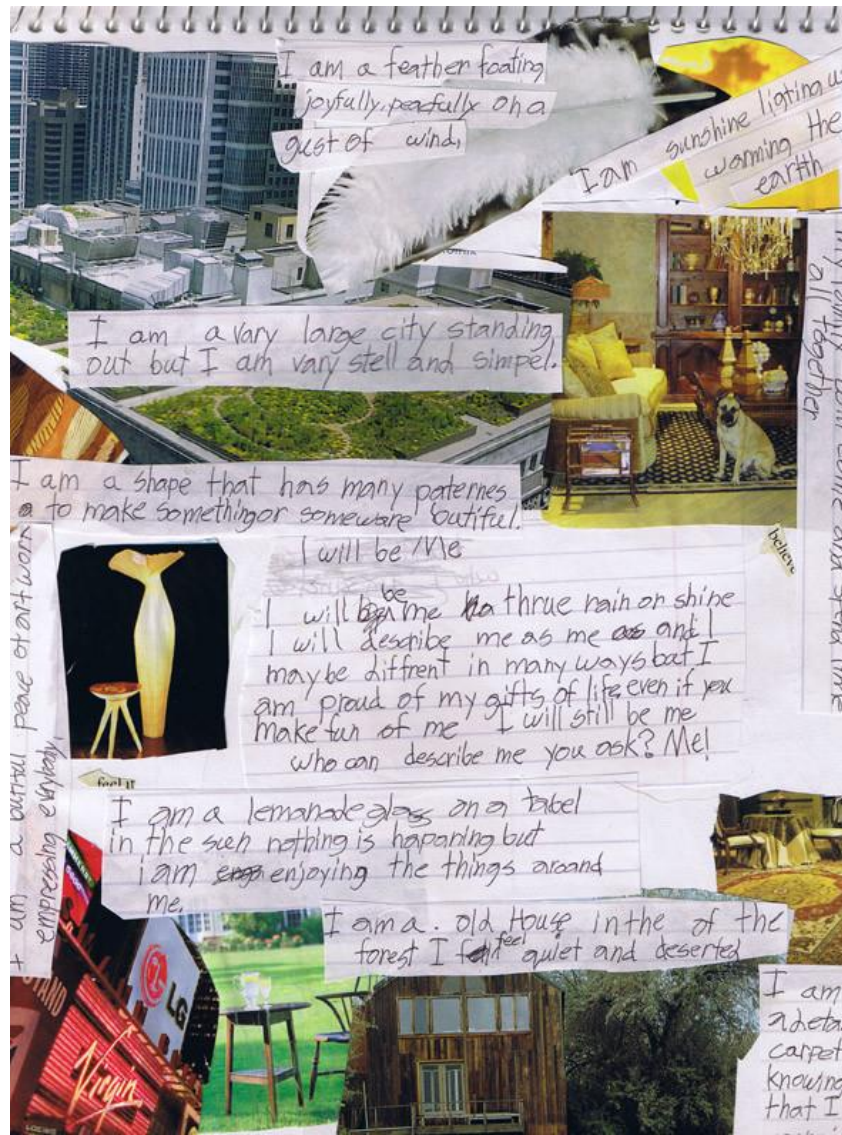 I am a feather foating
joyfully, peacfully on a
gust of wind,
I am sunshine ligting us
warming the
earth
I am a vary large city standing
out but I am vary stell and simpel.
all together
I am a shape that has many paternes
to make something or someware butiful.
I will be Me
believe
I will be me thrue rain or shine
I will describe me as me and I
maybe diffrent in many ways but I
am proud of my gifts of life even if you
make fun of me I will still be me
who can describe me you ask? Me!
I am a butiful peace of artwork
empressing evrybody,
feel it
I am a lemanade glass on a tabel
in the sun nothing is hapaning but
i am enjoying the things around
me,
I am a. old House in the of the
forest I feel quiet and deserted
STAND
LG
Virgin
LOEWS
I am
carpet
knowing
that I